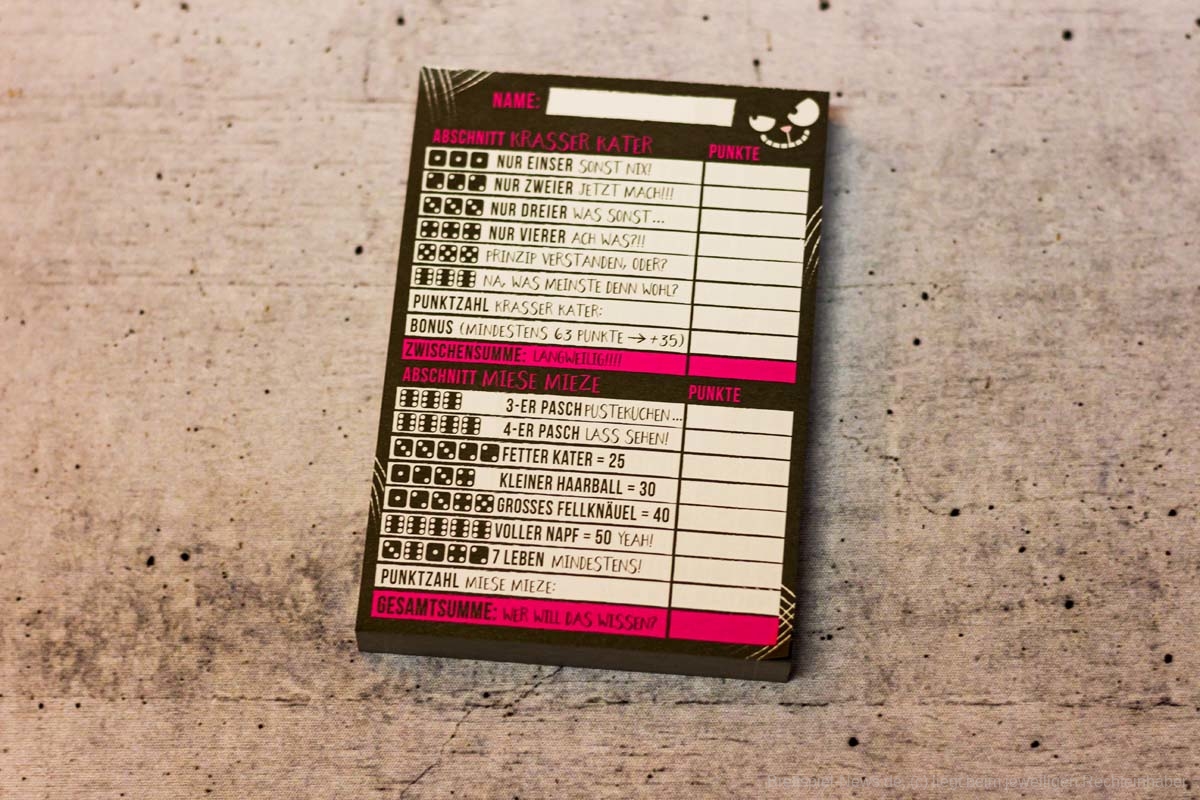 NAME:
ABSCHNITT KRASSER KATER PUNKTE
NUR EINSER SONST NIX!
NUR ZWEIER JETZT MACH!!!
NUR DREIER WAS SONST...
NUR VIERER ACH WAS?!!
PRINZIP VERSTANDEN, ODER?
NA, WAS MEINSTE DENN WOHL?
PUNKTZAHL KRASSER KATER:
BONUS (MINDESTENS 63 PUNKTE → +35)
ZWISCHENSUMME: LANGWEILIG!!!!
ABSCHNITT MIESE MIEZE PUNKTE
3-ER PASCH PUSTEKUCHEN...
4-ER PASCH LASS SEHEN!
FETTER KATER = 25
KLEINER HAARBALL = 30
GROSSES FELLKNÄUEL = 40
VOLLER NAPF = 50 YEAH!
7 LEBEN MINDESTENS!
PUNKTZAHL MIESE MIEZE:
GESAMTSUMME: WER WILL DAS WISSEN?